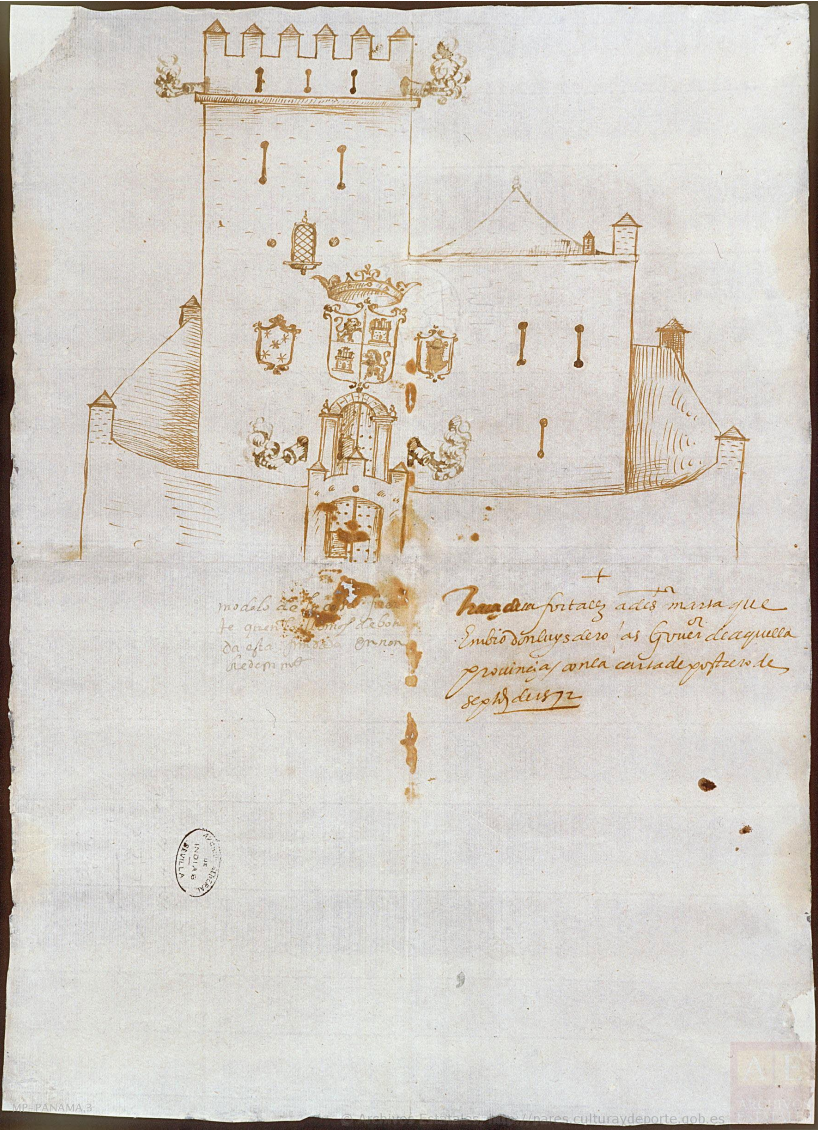 modelo de la casa fuer
te que en el
da esta en non
bre de m mt
+
Traça dela fortalez a de stª marta que
Embio don luys de rojas Gouer de aquella
prouinçia / con la carta de postrero de
septe de 1572
ARCHIVO GENERAL
DE
INDIAS
SEVILLA
MP-PANAMA,3
© Archivos Estatales, http://pares.culturaydeporte.gob.es
ARCHIVO